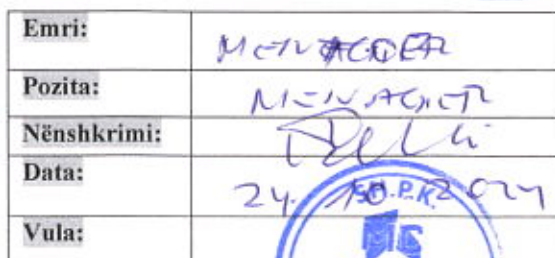 Emri: MENAGER
Pozita: MENAGER
Nënshkrimi:
Data: 24. 10 2024
SH.P.K.
Vula: